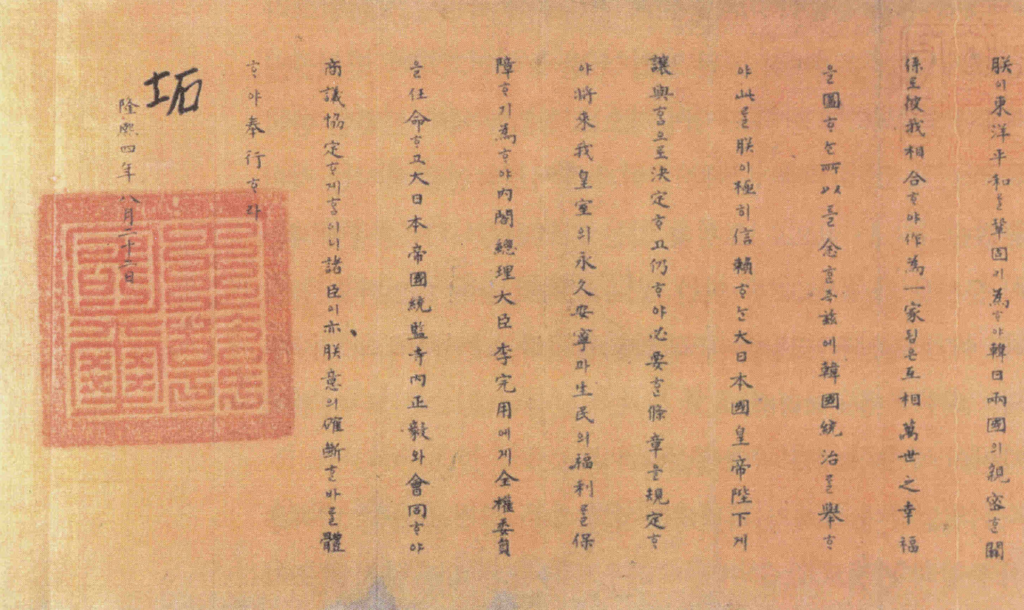 朕이東洋平和를鞏固기為ᄒᆞ야韓日兩國의親密ᄒᆞᆫ關
係로彼我相合ᄒᆞ야作為一家됨은互相萬世之幸福
을圖ᄒᆞᄂᆞᆫ所以를念ᄒᆞᆫ즉玆에韓國統治를擧ᄒᆞ
야此를朕이極히信賴ᄒᆞᄂᆞᆫ大日本國皇帝陛下게
讓與ᄒᆞᆷ으로決定ᄒᆞ고仍ᄒᆞ야必要ᄒᆞᆫ條章을規定ᄒᆞ
야將來我皇室의永久安寧과生民의福利를保
障ᄒᆞ기為ᄒᆞ야內閣總理大臣李完用에게全權委員
을任命ᄒᆞ고大日本帝國統監寺內正毅와會同ᄒᆞ야
商議協定ᄒᆞ게ᄒᆞᆷ이니諸臣이亦朕意의確斷ᄒᆞᆫ바를體
ᄒᆞ야奉行ᄒᆞ라
坧
隆熙四年八月二十二日